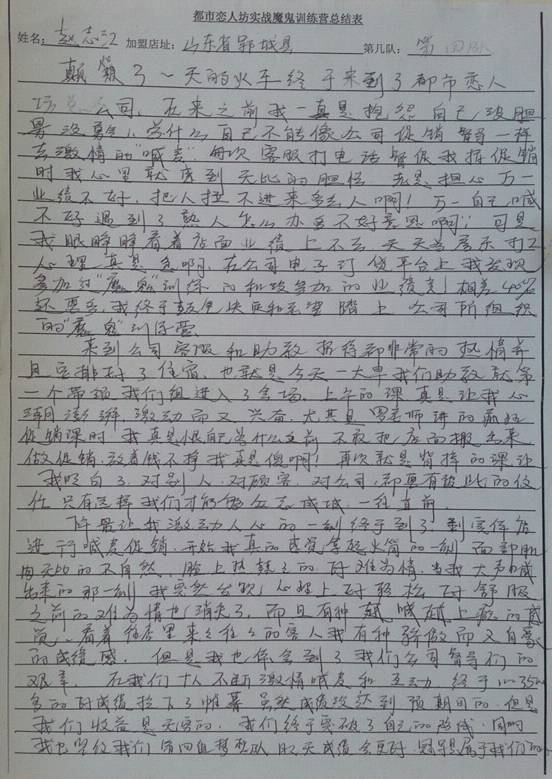 都市恋人坊实战魔鬼训练营总结表
姓名: 赵志江 加盟店址: 山东省郓城县 第几队: 第四队
颠簸了一天的火车终于来到了都市恋人
坊公司,在来之前我一直是抱怨自己没胆
量没勇气,为什么自己不能像公司促销督导一样
去激情的"喊麦"每次客服打电话督促我搞促销
时我心里就感到无比的胆怯 老是担心万一
业绩不好,把人拉不进来多丢人啊!万一自己喊
不好遇到了熟人怎么办多不好意思啊!可是
我眼睁睁看着店面业绩上不去天天
心里真是急啊,在公司电子订货平台上我发现
参加过"魔鬼"训练的和没参加的业绩竟相差40%
还要多,我终于鼓气决定和踏上公司所组织
的"魔鬼"训练营
来到公司客服和助教接待都非常的热情并
且安排好了住宿,也就是今天一大早我们助教就第
一个带领我们组进入了会场,上午的课真是让我心
潮澎湃,激动而又兴奋,尤其是罗老师讲的疯狂
促销课时 我真是恨自己为什么之前不敢把店面搬出来
做促销,放着钱不挣我真是傻啊!再次就是的课让
我明白了,对别人,对顾客,对公司,都要有彼此的信
任 只有这样我们才能够众志成城,一往直前
阵最让我激动人心的一刻终于到了 到实体店
进行喊麦促销,开始我真的感觉拿起话筒的一刻 面部肌
肉无比的不自然,脸上热辣了的 好难为情,当我大声喊
出来的那一刻 我突然发现,心理上好轻松好舒服
之前的难为情也消失了,而且有种越喊越上瘾的感
觉,看着店里来来往往的客人我有种骄傲而又自豪
的成绩感,但是我也体会到了我们公司督导们的
艰辛,在我们十人不断激情喊麦和互动 终于以35
多的好成绩拉下了帷幕 虽然成绩没达到预期目的,但是
我们收益是无限的,我们终于突破了自己的,同时
我也坚信我们第四组梦之队 明天成绩会更好,冠军是属于我们的